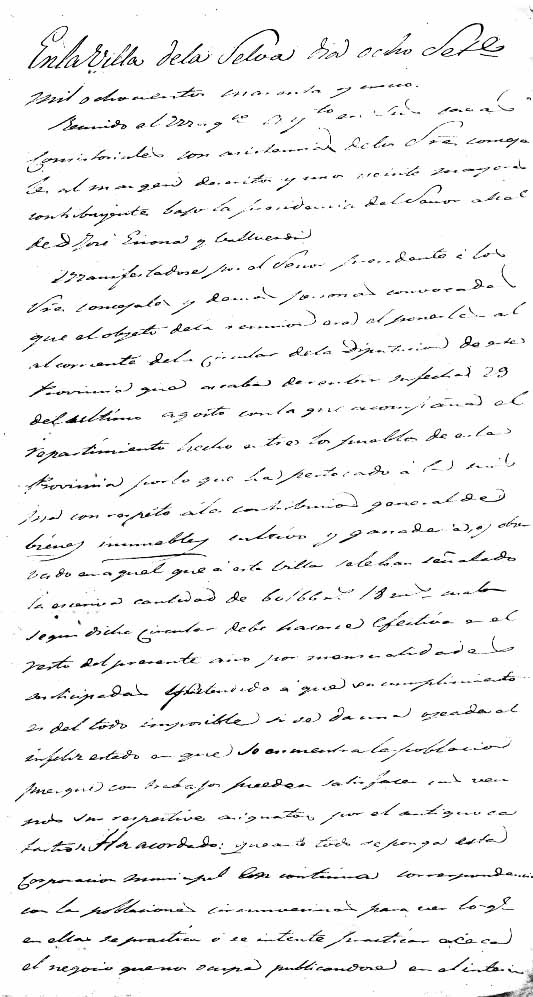 En la Villa de la Selva dia ocho Set.e
mil ochocientos cuarenta y cinco.
Reunido el M. Ayto en sus casas
Consistoriales con asistencia de los Sres conceja
les al margen descritos y mayores
contribuyente bajo la presidencia del Señor alcal
de D José Girona y
Manifestadose por el Señor presidente á los
Sres concejales y demas personas convocadas
que el objeto de la reunion era el ponerles al
al corriente de la Circular de la Diputacion de esta
Provincia que acaba de recibir su fecha 29
del ultimo agosto con la que acompaña el
repartimiento hecho entre los pueblos de esta
Provincia por lo que ha pertocado á la
ma con respeto á la contribucion general de
bienes inmuebles cultivo y ganaderia, y obser
vado en aquel que á esta Villa se le han señalado
la escesiva cantidad de 18 m.s
segun dicha Circular debe hacerse efectiva en el
resto del presente año por mensualidades
anticipadas y atendido á que su cumplimiento
es del todo imposible si se da una ojeada al
infeliz estado en que se encuentra la poblacion
pues que con trabajos pueden satisfacer sus veci
nos sus respectivos asignatos por el antiguo ca
tastro: Ha acordado: que ante todo se ponga esta
Corporacion municipal en continua correspondencia
con las poblaciones circumvecinas para ver lo q.e
en ellas se practica ó se intente practicar acerca
el negocio que nos ocupa publicandose en el interin